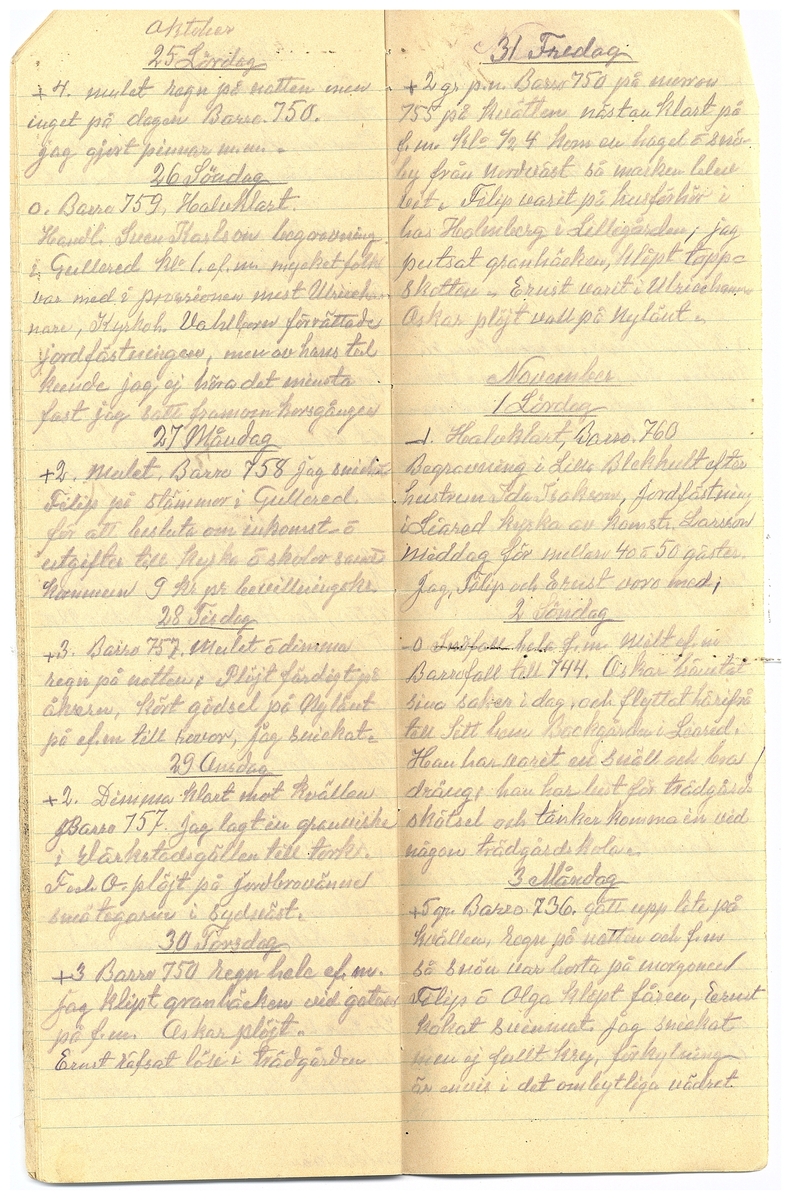 Oktober
25 Lördag
+4. mulet regn på natten men
inget på dagen Barro. 750.
jag gjort pinnar m.m.
26 Söndag
0. Barro 759, Halvklart.
Handl. Sven Karlson begravning
i Gullered kl. 1. ef.m. mycket folk
var med i prosesionen mest Ulriceham
nare, Kyrkoh. förrättade
jordfästningen, men av hans tal
kunde jag ej höra det minsta
fast jag satt framom korsgången
27 Måndag
+2. Mulet. Barro 758 jag snickat
Filip på stämmor i Gullered
för att besluta om inkomst- o
utgifter till kyrka o skolor samt
kommun 9 kr pr bevillningskr.
28 Tisdag
+3. Barro 757. Mulet o dimma
regn på natten; Plöjt färdigt på
åkern, kört gödsel på Nylänt
på ef.m till hovor, jag snickat-
29 Onsdag
+2. Dimma klart mot kvällen
Barro 757. jag lagt in granvirke
i Värkstadsgöllen till tork.
F och O- plöjt på jordbrovännd
småtegarne i sydväst.
30 Torsdag
+3 Barro 750 regn hela ef.m.
jag klipt granhäcken vid gatan
på f.m. Oskar plöjt.
Ernst räfsat löv i trädgården
31 Fredag
+2 gr. p.n. Barro 750 på morron
755 på kvällen nästan klart på
f.m. kl. 1/2 4 kom en hagel o snö-
by från nordväst så marken blev
vit. Filip varit på husförhör i
hos Holmberg i Lillegården; jag
putsat granhäcken, klipt topp=
skotten. Ernst varit i Ulricehamn
Oskar plöjt vall på Nylänt.
November
1 Lördag
-1. Halvklart, Barro. 760
Begravning i Lilla Blekhult efter
hustrun Ida Isakson, jordfästning
i Liared kyrka av komst. Larsson
Middag för mellan 40 o 50 gäster.
Jag, Filip och Ernst voro med;
2 Söndag
-0 Snöfall hela f.m. Milt ef.m
Barrofall till 744. Oskar hämtat
sina saker i dag, och flyttat härifrå
till sitt hem Backgården i Liared.
Han har varit en snäll och bra
dräng; han har lust för trädgårds
skötsel och tänker komma in vid
någon trädgårdskola.
3 Måndag
+5 gr. Barro. 736. gått upp lite på
kvällen, regn på natten och f.m
så snön var borta på morgonen
Filip o Olga klipt fåren, Ernst
kokat svinmat. jag snickat
men ej fullt kry, förkylning
är envis i det ombytliga vädret.